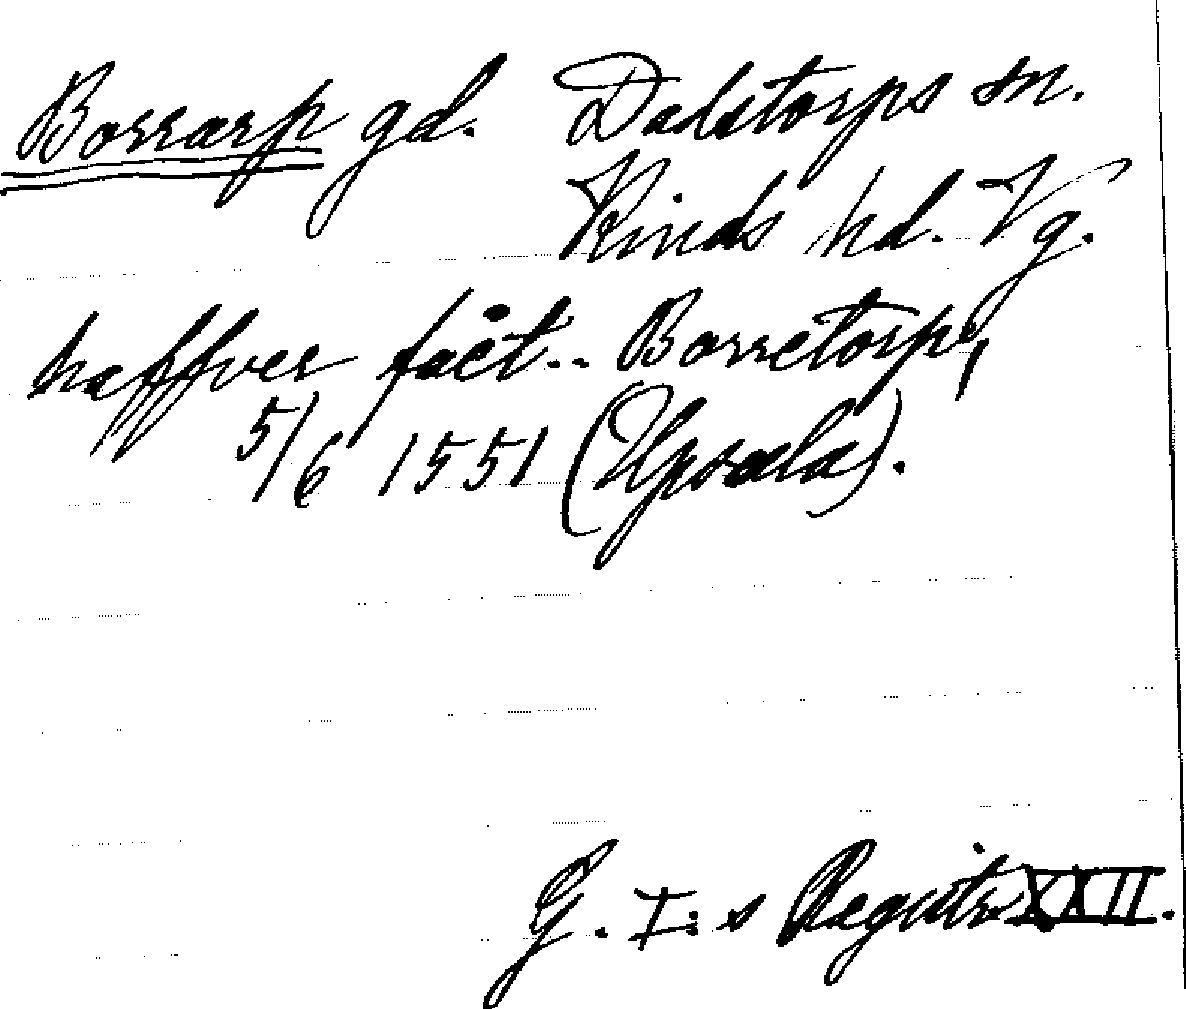 Borrarp gd. Dalstorps sn.
Kinds hd. Vg.
haffver fået.. Borretorp,
5/6 1551 (Upsala).
G. I:s Registr. XXII.